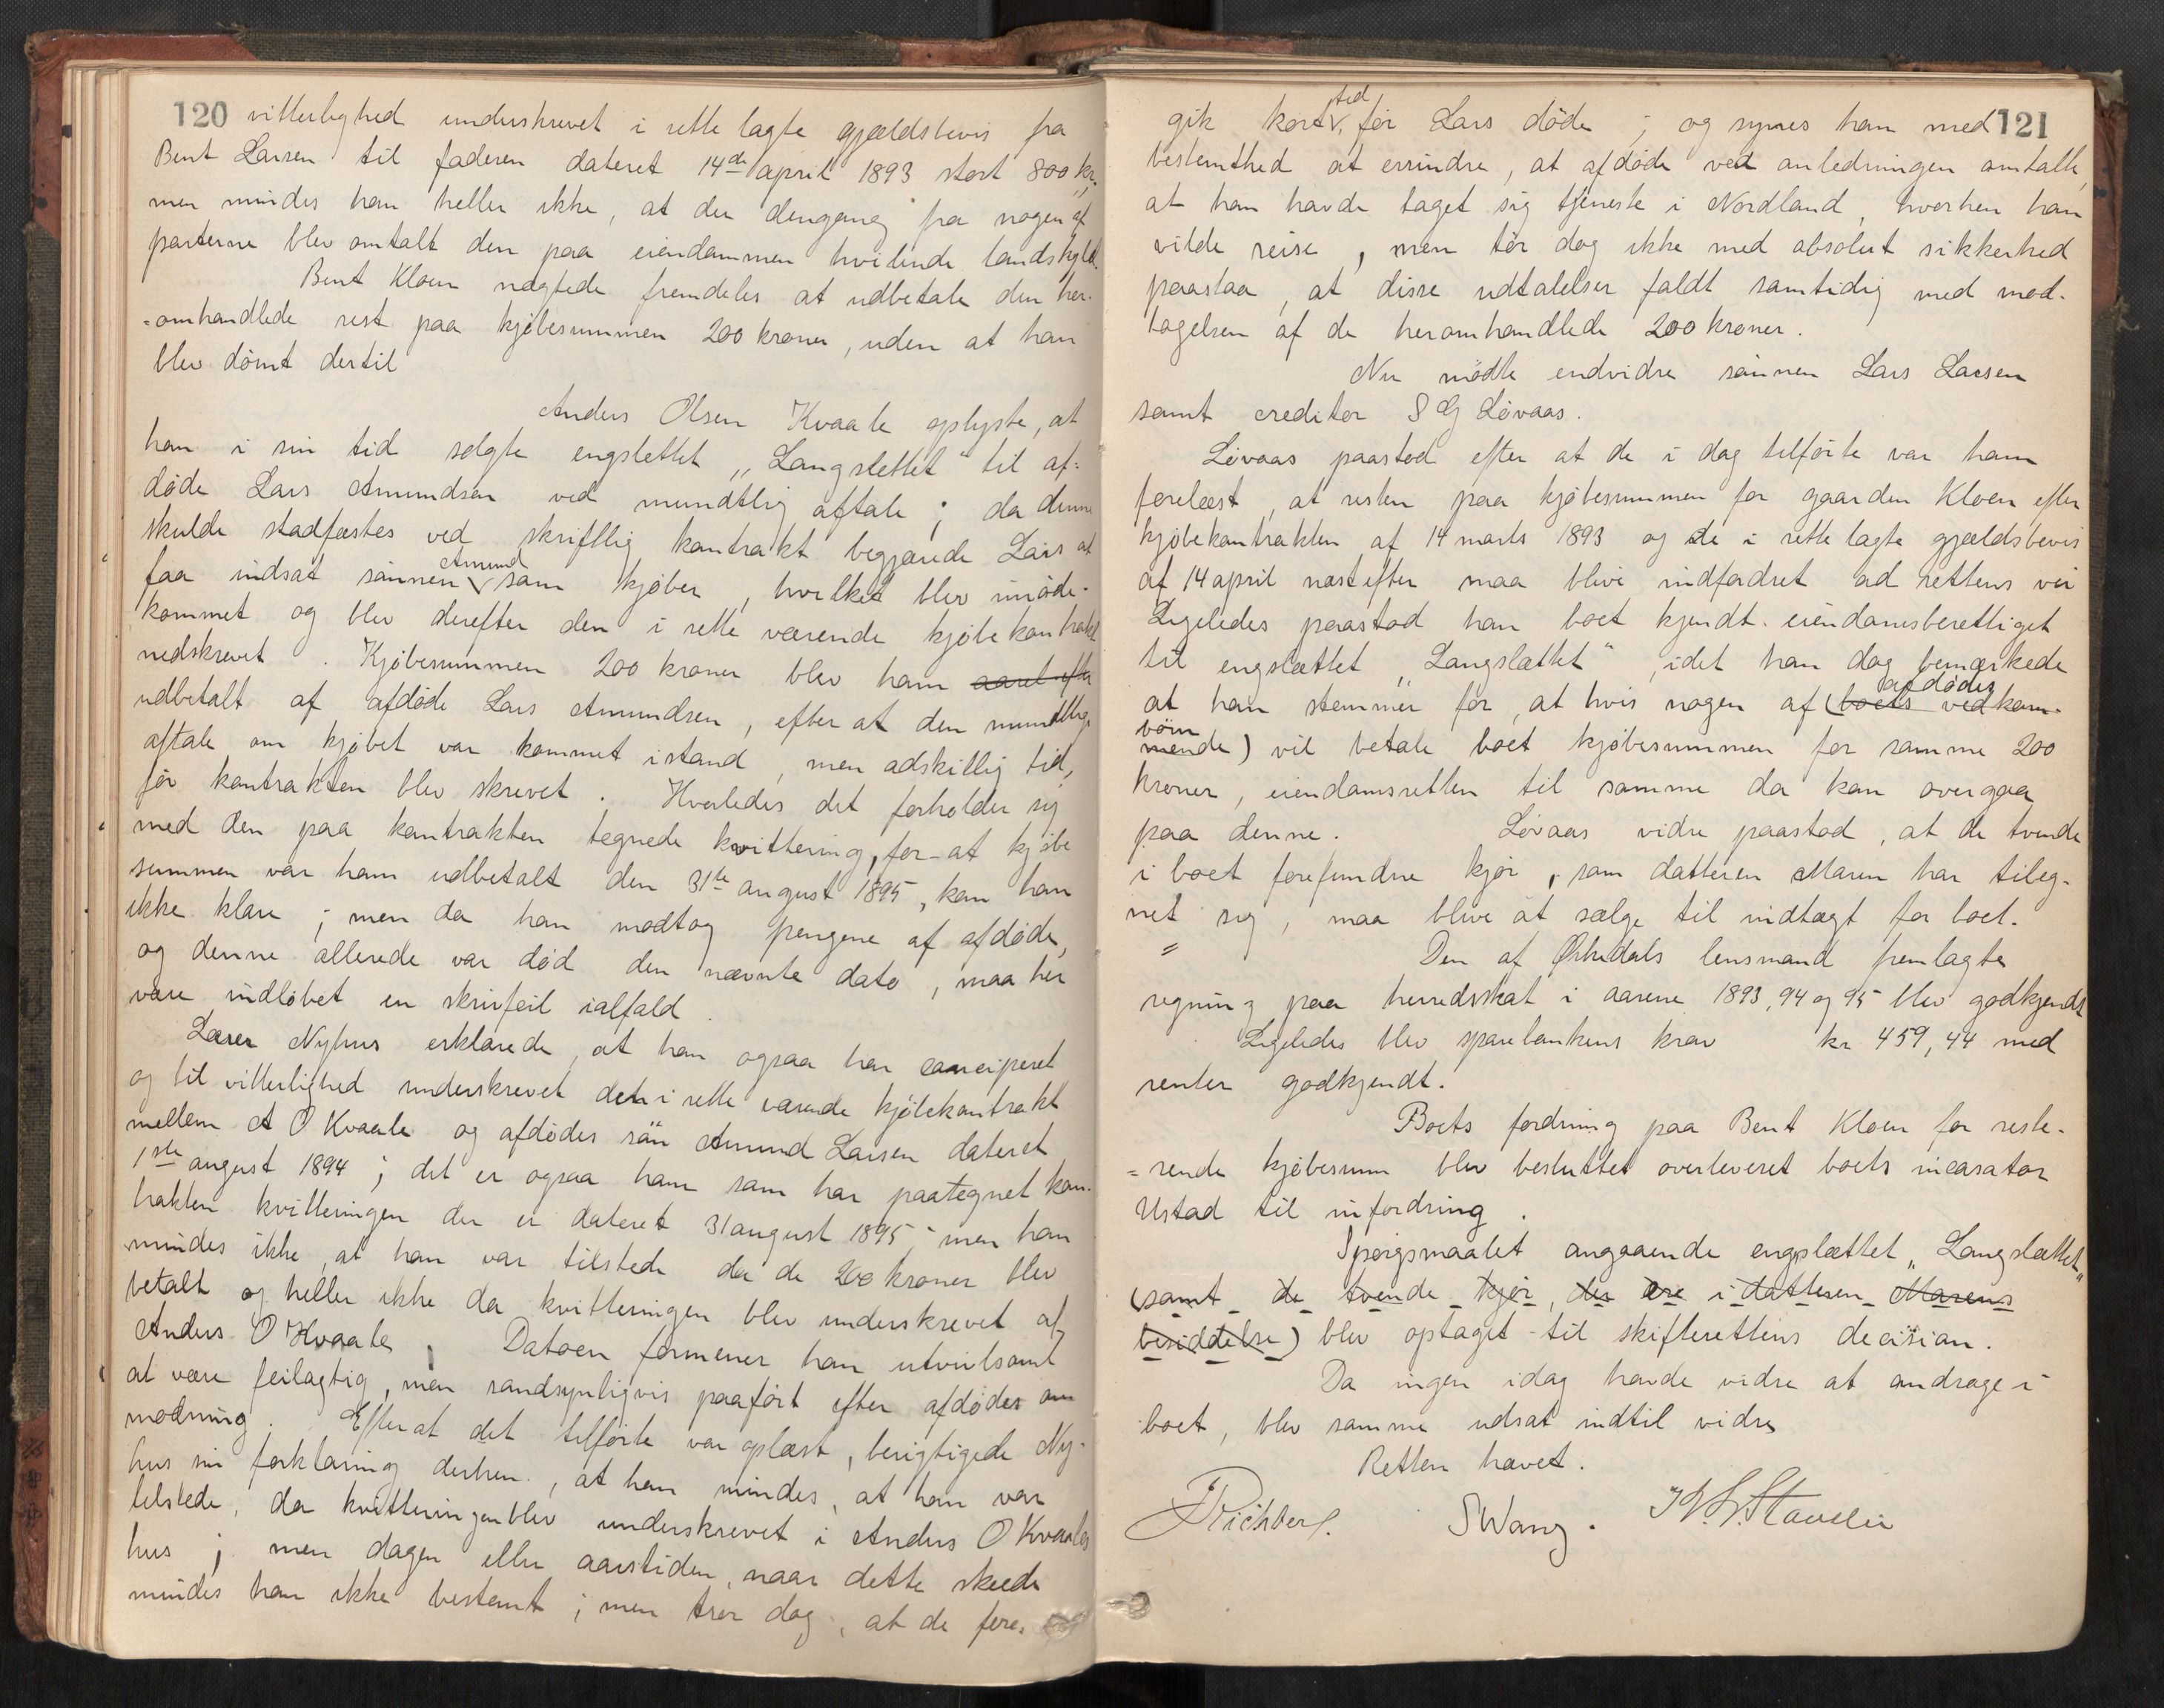 120
vitterlighed underskrevet i rette lagte gjældsbevis fra
Bent Larsen til faderen dateret 14de april 1893 stort 800 kr.
men mindes han heller ikke, at der dengang fra nogen af
parterne blev omtalt den paa eiendommen hvilende landskyld.
Bent Kloen nægtede fremdeles at udbetale den her-
=omhandlede rest paa kjøbesummen 200 kroner, uden at han
blev dømt dertil
Anders Olsen Kvaale oplyste, at
han i sin tid solgte engslettet „Langslettet“ til af-
døde Lars Amundsen ved mundtlig aftale; da denne
skulde stadfæstes ved skriftlig kontrakt begjærede Lars at
faa indsat sønnen Amund som kjøber, hvilket blev imøde-
kommet og blev derefter den i rette værende kjøbekontrakt
nedskrevet. Kjøbesummen 200 kroner blev ham aaret efter
udbetalt af afdøde Lars Amundsen, efter at den mundtlige
aftale om kjøbet var kommet istand, men adskillig tid,
før kontrakten blev skrevet. Hvorledes det forholder sig
med den paa kontrakten tegnede kvittering, for at kjøbe
summen var ham udbetalt den 31te august 1895, kan han
ikke klare; men da han modtog pengene af afdøde,
og denne allerede var død den nævnte dato, maa her
være indløbet en skrivfeil ialfald.
Lærer Nyhus erklærede, at han ogsaa har conciperet
og til vitterlighed underskrevet den i rette værende kjøbekontrakt
mellem A O Kvaale og afdødes søn Amund Larsen dateret
1ste august 1894; det er ogsaa ham som har paategnet kon-
trakten kvitteringen der er dateret 31 august 1895; men han
mindes ikke, at han var tilstede da de 200 kroner blev
betalt og heller ikke da kvitteringen blev underskrevet af
Anders O Kvaale. Datoen formener han utvivlsomt
at være feilagtig, men sandsynligvis paaført efter afdødes an
modning. Efterat det tilførte var oplæst, berigtigede Ny-
hus sin forklaring derhen, at han mindes, at han var
tilstede, da kvitteringen blev underskrevet i Anders O Kvaales
hus; men dagen eller aarstiden, naar dette skede
mindes han ikke bestemt; men tror dog, at de fore-
121
gik kort tid før Lars døde; og synes han med
bestemthed at erindre, at afdøde ved anledningen omtalte,
at han havde taget sig tjeneste i Nordland, hvorhen han
vilde reise, men tør dog ikke med absolut sikkerhed
paastaa, at disse udtalelser faldt samtidig med mod-
tagelsen af de heromhandlede 200 kroner.
Nu mødte endvidre sønnen Lars Larsen
samt creditor S G Løvaas.
Løvaas paastod efter at de i dag tilførte var ham
forelæst, at resten paa kjøbesummen for gaarden Kloen efter
kjøbekontrakten af 14 marts 1893 og de i rette lagte gjældsbevis
af 14 april næstefter maa blive indfordret ad rettens vei
Ligeledes paastod han boet kjendt eiendomsberettiget
til engslættet „Langslættet“, idet han dog bemærkede
at han stemmer for, at hvis nogen af (boets vedkom- afdødes
mende) børn vil betale boet kjøbesummen for samme 200
kroner, eiendomsretten til samme da kan overgaa
paa denne. Løvaas vidre paastod, at de tvende
i boet forefundne kjør, som datteren Maren har tileg-
net sig, maa blive at sælge til indtægt for boet.
= Den af Ørkedals lensmand fremlagte
regning paa herredsskat i aarene 1893, 94 og 95 blev godkjendt
Ligeledes blev sparebankens krav kr 459,44 med
renter godkjendt.
Boets fordring paa Bent Kloen for reste-
=rende kjøbesum blev besluttet overleveret boets incasator
Ustad til infordring.
Spørgsmaalet angaaende engslættet „Langslættet“
(samt de tvende kjør, der ere i datteren Marens
besiddelse) blev optaget til skifterettens decision.
Da ingen idag havde vidre at andrage i
boet, blev samme udsat indtil vidre
Retten hævet.
SWang.